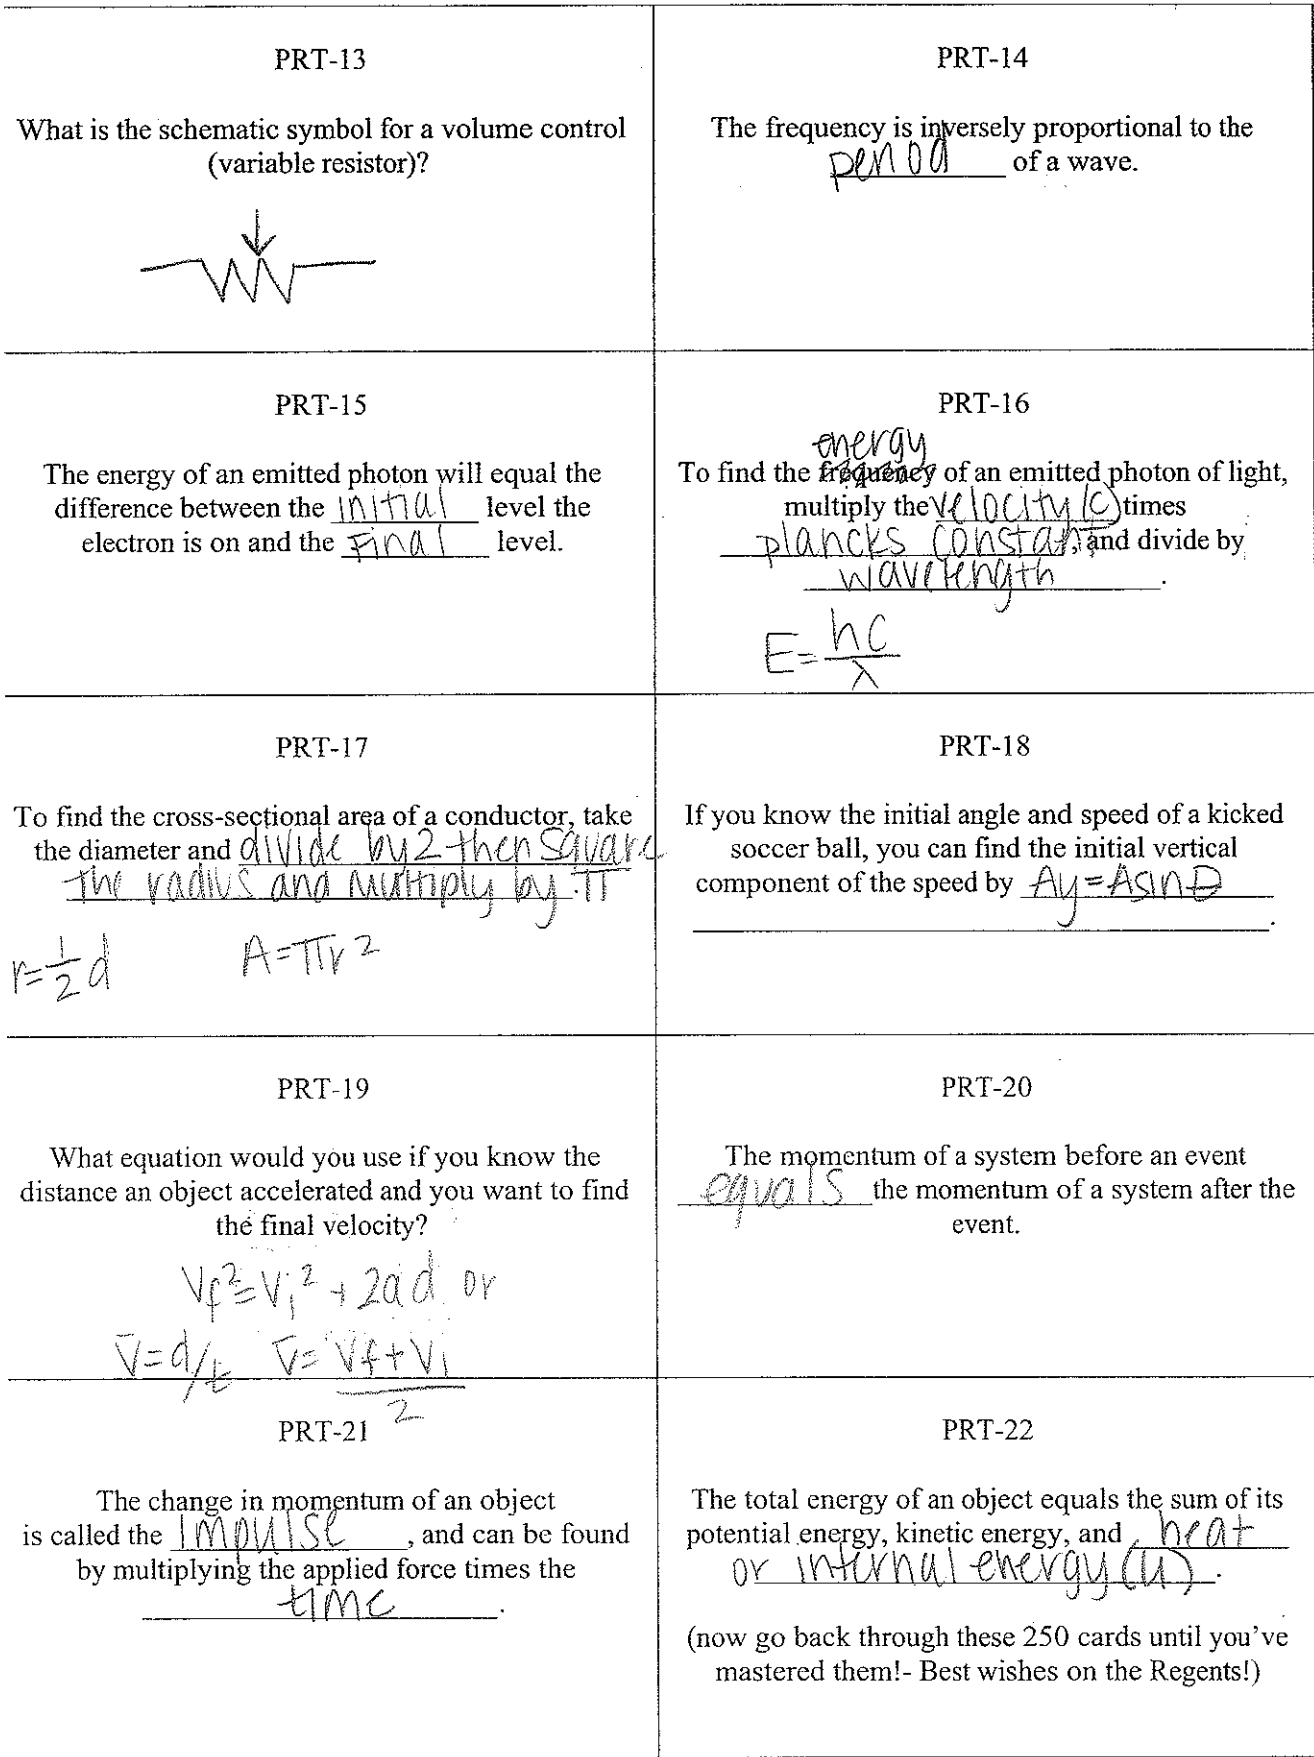 PRT-13
What is the schematic symbol for a volume control
(variable resistor)?
PRT-14
The frequency is inversely proportional to the
period of a wave.
PRT-15
The energy of an emitted photon will equal the
difference between the initial level the
electron is on and the Final level.
PRT-16
energy
To find the frequency of an emitted photon of light,
multiply the velocity (c) times
plancks constant, and divide by
wavelength.
E = hc/λ
PRT-17
To find the cross-sectional area of a conductor, take
the diameter and divide by 2 then square
the radius and multiply by π
r = 1/2 d A = πr²
PRT-18
If you know the initial angle and speed of a kicked
soccer ball, you can find the initial vertical
component of the speed by Ay = Asinθ
.
PRT-19
What equation would you use if you know the
distance an object accelerated and you want to find
the final velocity?
Vf² = Vi² + 2ad or
V̄ = d/t V̄ = Vf + Vi / 2
PRT-20
The momentum of a system before an event
equals the momentum of a system after the
event.
PRT-21
The change in momentum of an object
is called the impulse, and can be found
by multiplying the applied force times the
time.
PRT-22
The total energy of an object equals the sum of its
potential energy, kinetic energy, and heat
or internal energy (u).
(now go back through these 250 cards until you've
mastered them!- Best wishes on the Regents!)